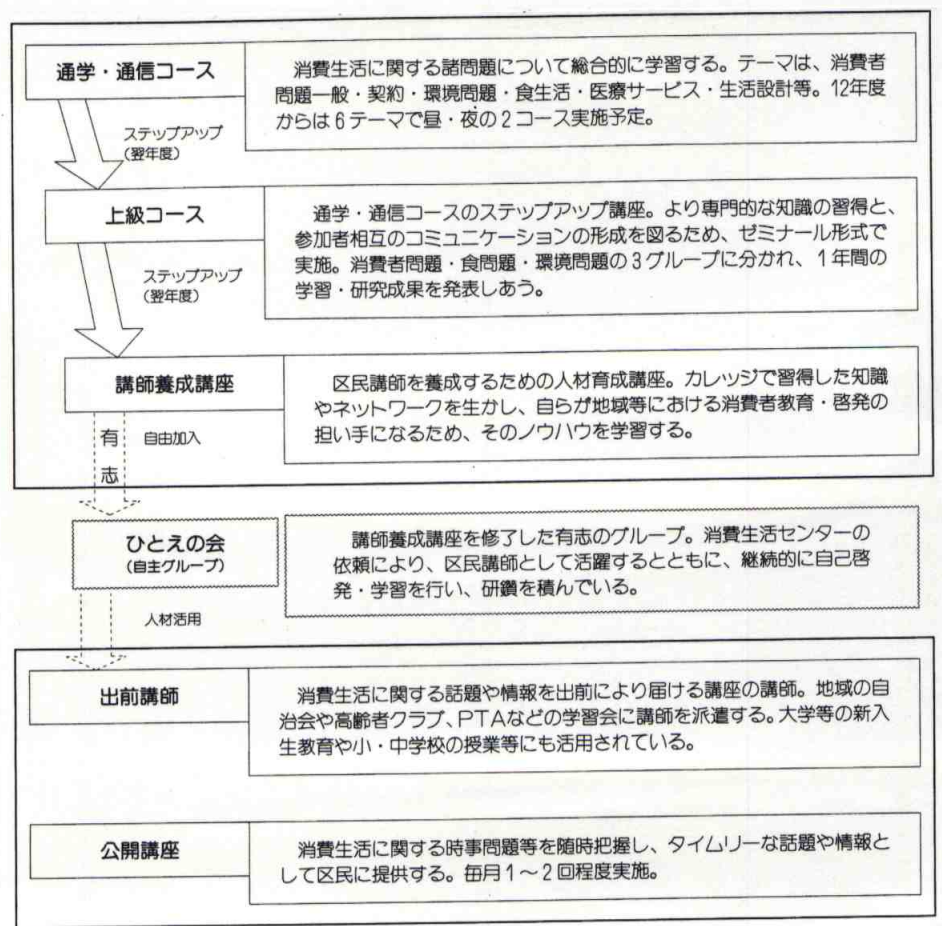 通学・通信コース
消費生活に関する諸問題について総合的に学習する。テーマは、消費者
問題一般・契約・環境問題・食生活・医療サービス・生活設計等。12年度
からは6テーマで昼・夜の2コース実施予定。
ステップアップ
(翌年度)
上級コース
通学・通信コースのステップアップ講座。より専門的な知識の習得と、
参加者相互のコミュニケーションの形成を図るため、ゼミナール形式で
実施。消費者問題・食問題・環境問題の3グループに分かれ、1年間の
学習・研究成果を発表しあう。
ステップアップ
(翌年度)
講師養成講座
区民講師を養成するための人材育成講座。カレッジで習得した知識
やネットワークを生かし、自らが地域等における消費者教育・啓発の
担い手になるため、そのノウハウを学習する。
有志
自由加入
ひとえの会
(自主グループ)
講師養成講座を修了した有志のグループ。消費生活センターの
依頼により、区民講師として活躍するとともに、継続的に自己啓
発・学習を行い、研鑽を積んでいる。
人材活用
出前講師
消費生活に関する話題や情報を出前により届ける講座の講師。地域の自
治会や高齢者クラブ、PTAなどの学習会に講師を派遣する。大学等の新入
生教育や小・中学校の授業等にも活用されている。
公開講座
消費生活に関する時事問題等を随時把握し、タイムリーな話題や情報と
して区民に提供する。毎月1～2回程度実施。